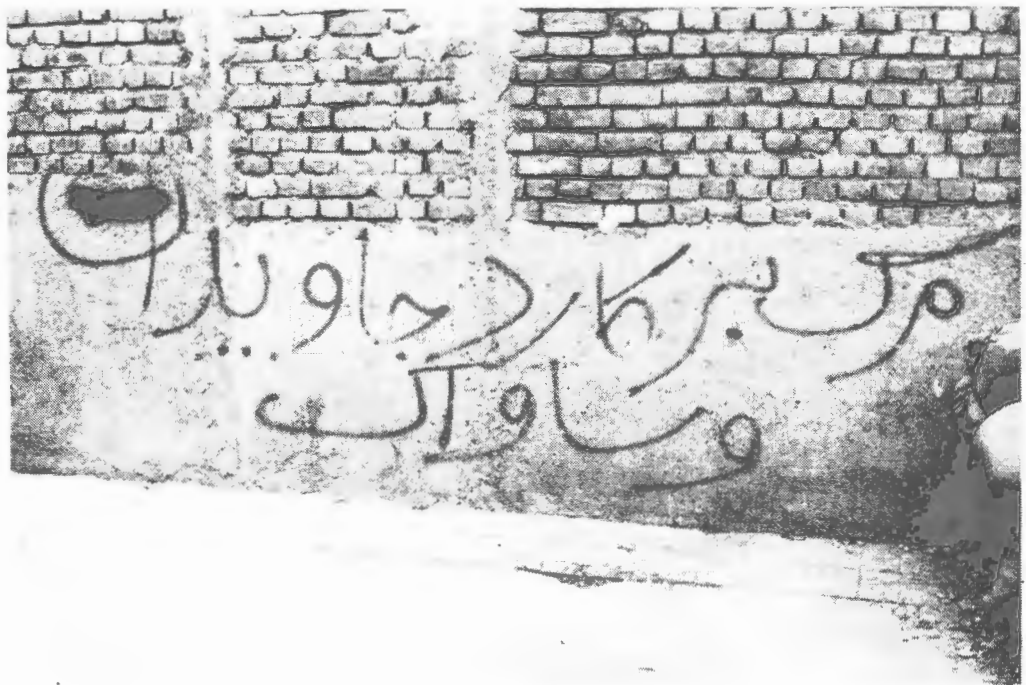 مرگ بر گارد جاویدان
و ساواک